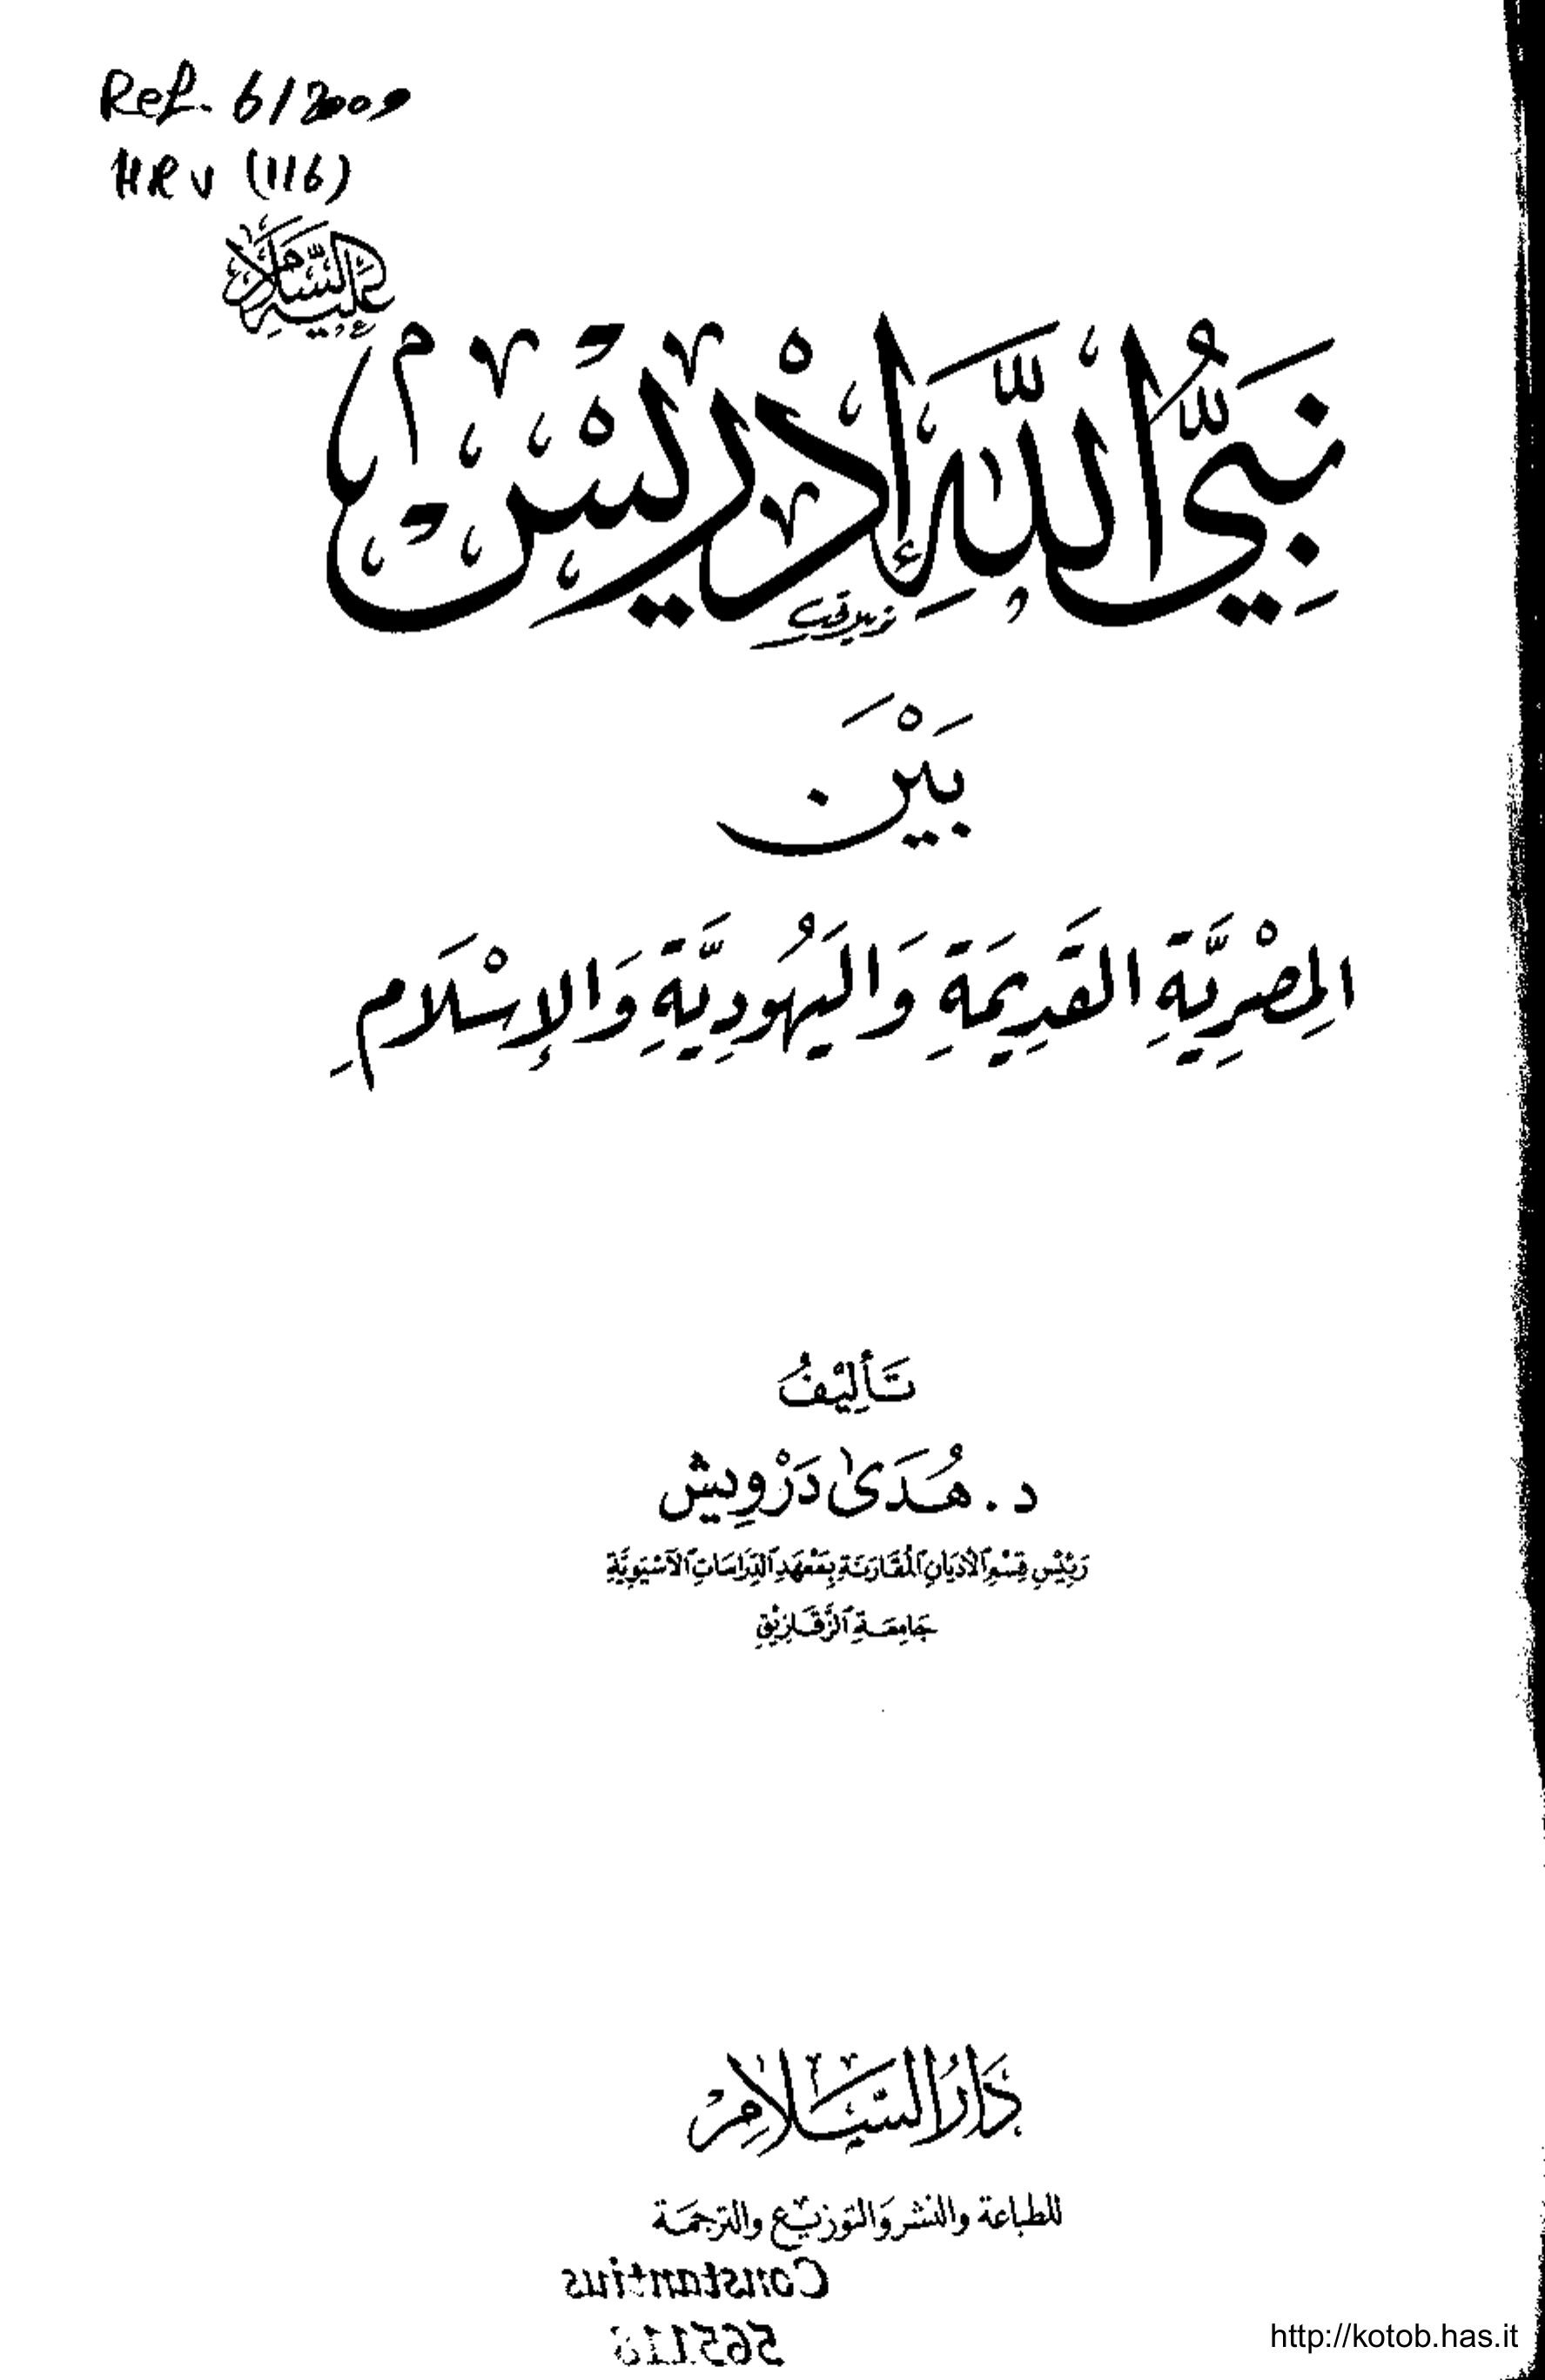 Ref. 6/2009
HRV (116)
عَلَيْهِ السَّلَام
نَبِيُّ اللَّهِ إِدْرِيسْ
بَيْنَ
المِصْرِيَّةِ القَدِيمَةِ وَاليَهُودِيَّةِ وَالإِسْلَامِ
تَأْلِيْفُ
د. هُدَىٰ دَرْوِيش
رَئِيْسِ قِسْمِ الأَدْيَانِ المُقَارَنَةِ بِمَعْهَدِ الدِّرَاسَاتِ الآسْيَوِيَّةِ
جَامِعَةِ الزَّقَازِيْقِ
دَارُ السَّلَامِ
للطباعة والنشر وَالتوزيع والترجمَة
Constantius
565118
http://kotob.has.it